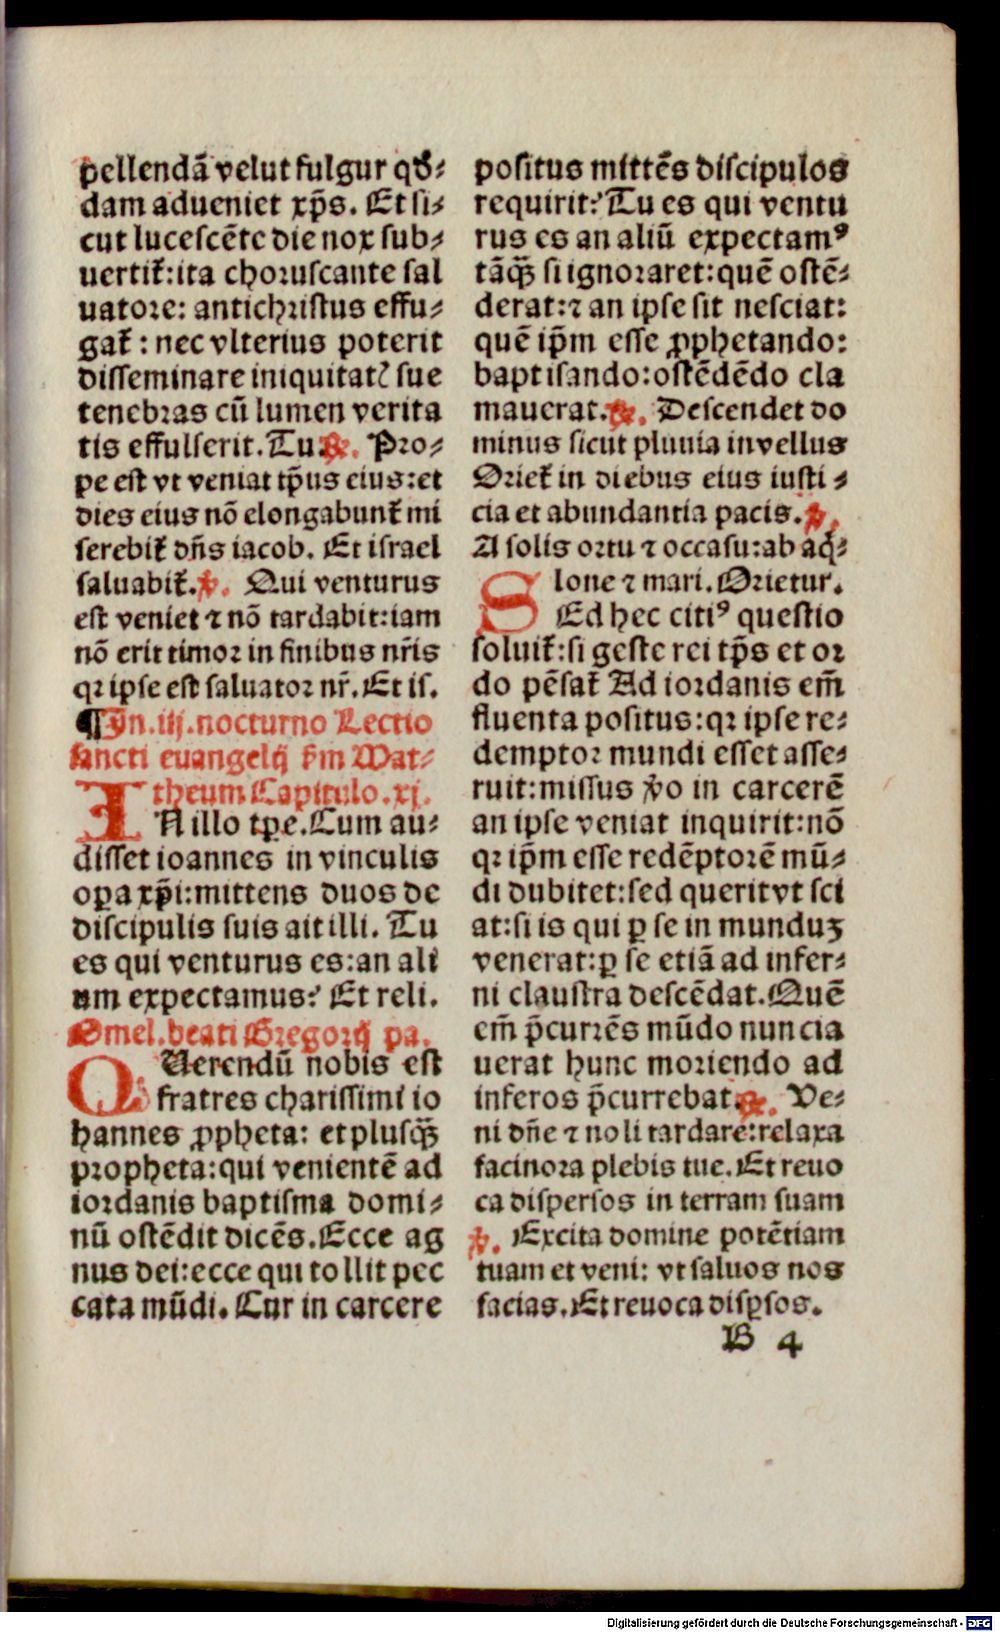 pellendā velut fulgur qd̄⸗
dam adueniet xp̄s. Et si⸗
cut lucescēte die nox sub⸗
uertit̄: ita choruscante sal
uatore: antichristus effu⸗
gat̄ : nec vlterius poterit
disseminare iniquitatꝭ sue
tenebras cū lumen verita
tis effulserit. Tu. ℟. Pro⸗
pe est vt veniat tp̄us eius: et
dies eius nō elongabunt̄ mi
serebit̄ dn̄s iacob. Et israel
saluabit̄. ℣. Qui venturus
est veniet ⁊ nō tardabit: iam
nō erit timor in finibus nr̄is
qꝛ ipse est saluator nr̄. Et is.
¶ In .iij. nocturno Lectio
sancti euangelij s̄m Mat⸗
theum Capitulo .xj.
IN illo tꝑe. Cum au⸗
disset ioannes in vinculis
oꝑa xp̄i: mittens duos de
discipulis suis ait illi. Tu
es qui venturus es: an ali
um expectamus? Et reli.
Omel. beati Gregorij pa.
QUerendū nobis est
fratres charissimi io
hannes ꝓpheta: et plusqꝫ̄
propheta: qui venientē ad
iordanis baptisma domi⸗
nū ostēdit dicēs. Ecce ag
nus dei: ecce qui tollit pec
cata mūdi. Cur in carcere
positus mittēs discipulos
requirit? Tu es qui ventu
rus es an aliū expectamꝰ
tāqꝫ̄ si ignoraret: quē ostē⸗
derat: ⁊ an ipse sit nesciat:
quē ip̄m esse ꝓphetando:
baptisando: ostēdēdo cla
mauerat. ℟. Descendet do
minus sicut pluuia in vellus
Oriet̄ in diebus eius iusti⸗
cia et abundantia pacis. ℣.
A solis ortu ⁊ occasu: ab aq̄⸗
lone ⁊ mari. Orietur.
SEd hec citiꝰ questio
soluit̄: si geste rei tp̄s et or
do pēsat̄ Ad iordanis em̄
fluenta positus: qꝛ ipse re⸗
demptor mundi esset asse⸗
ruit: missus v̄o in carcerē
an ipse veniat inquirit: nō
qꝛ ip̄m esse redēptorē mū⸗
di dubitet: sed querit vt sci
at: si is qui ꝑ se in munduꝫ
venerat: ꝑ se etiā ad infer⸗
ni claustra descēdat. Quē
em̄ p̄currēs mūdo nuncia
uerat hunc moriendo ad
inferos p̄currebat. ℟. Ve⸗
ni dn̄e ⁊ noli tardare: relaxa
facinora plebis tue. Et reuo
ca dispersos in terram suam
℣. Excita domine potētiam
tuam et veni: vt saluos nos
facias. Et reuoca disꝑsos.
B 4
Digitalisierung gefördert durch die Deutsche Forschungsgemeinschaft - DFG